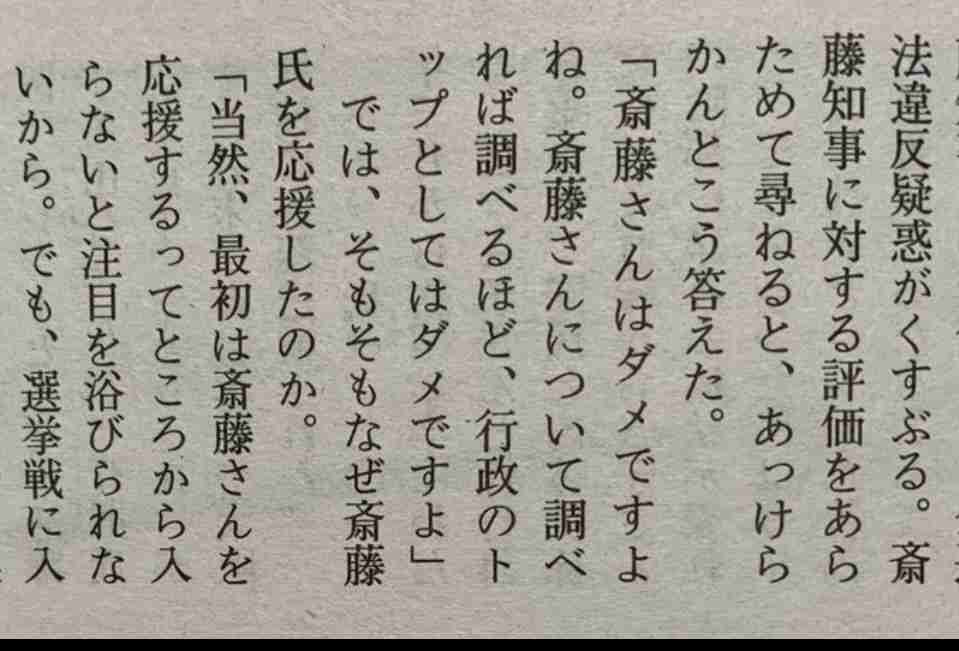 法違反疑惑がくすぶる。斎
藤知事に対する評価をあら
ためて尋ねると、あっけら
かんとこう答えた。
「斎藤さんはダメですよ
ね。斎藤さんについて調べ
れば調べるほど、行政のト
ップとしてはダメですよ」
では、そもそもなぜ斎藤
氏を応援したのか。
「当然、最初は斎藤さんを
応援するってところから入
らないと注目を浴びられな
いから。でも、選挙戦に入